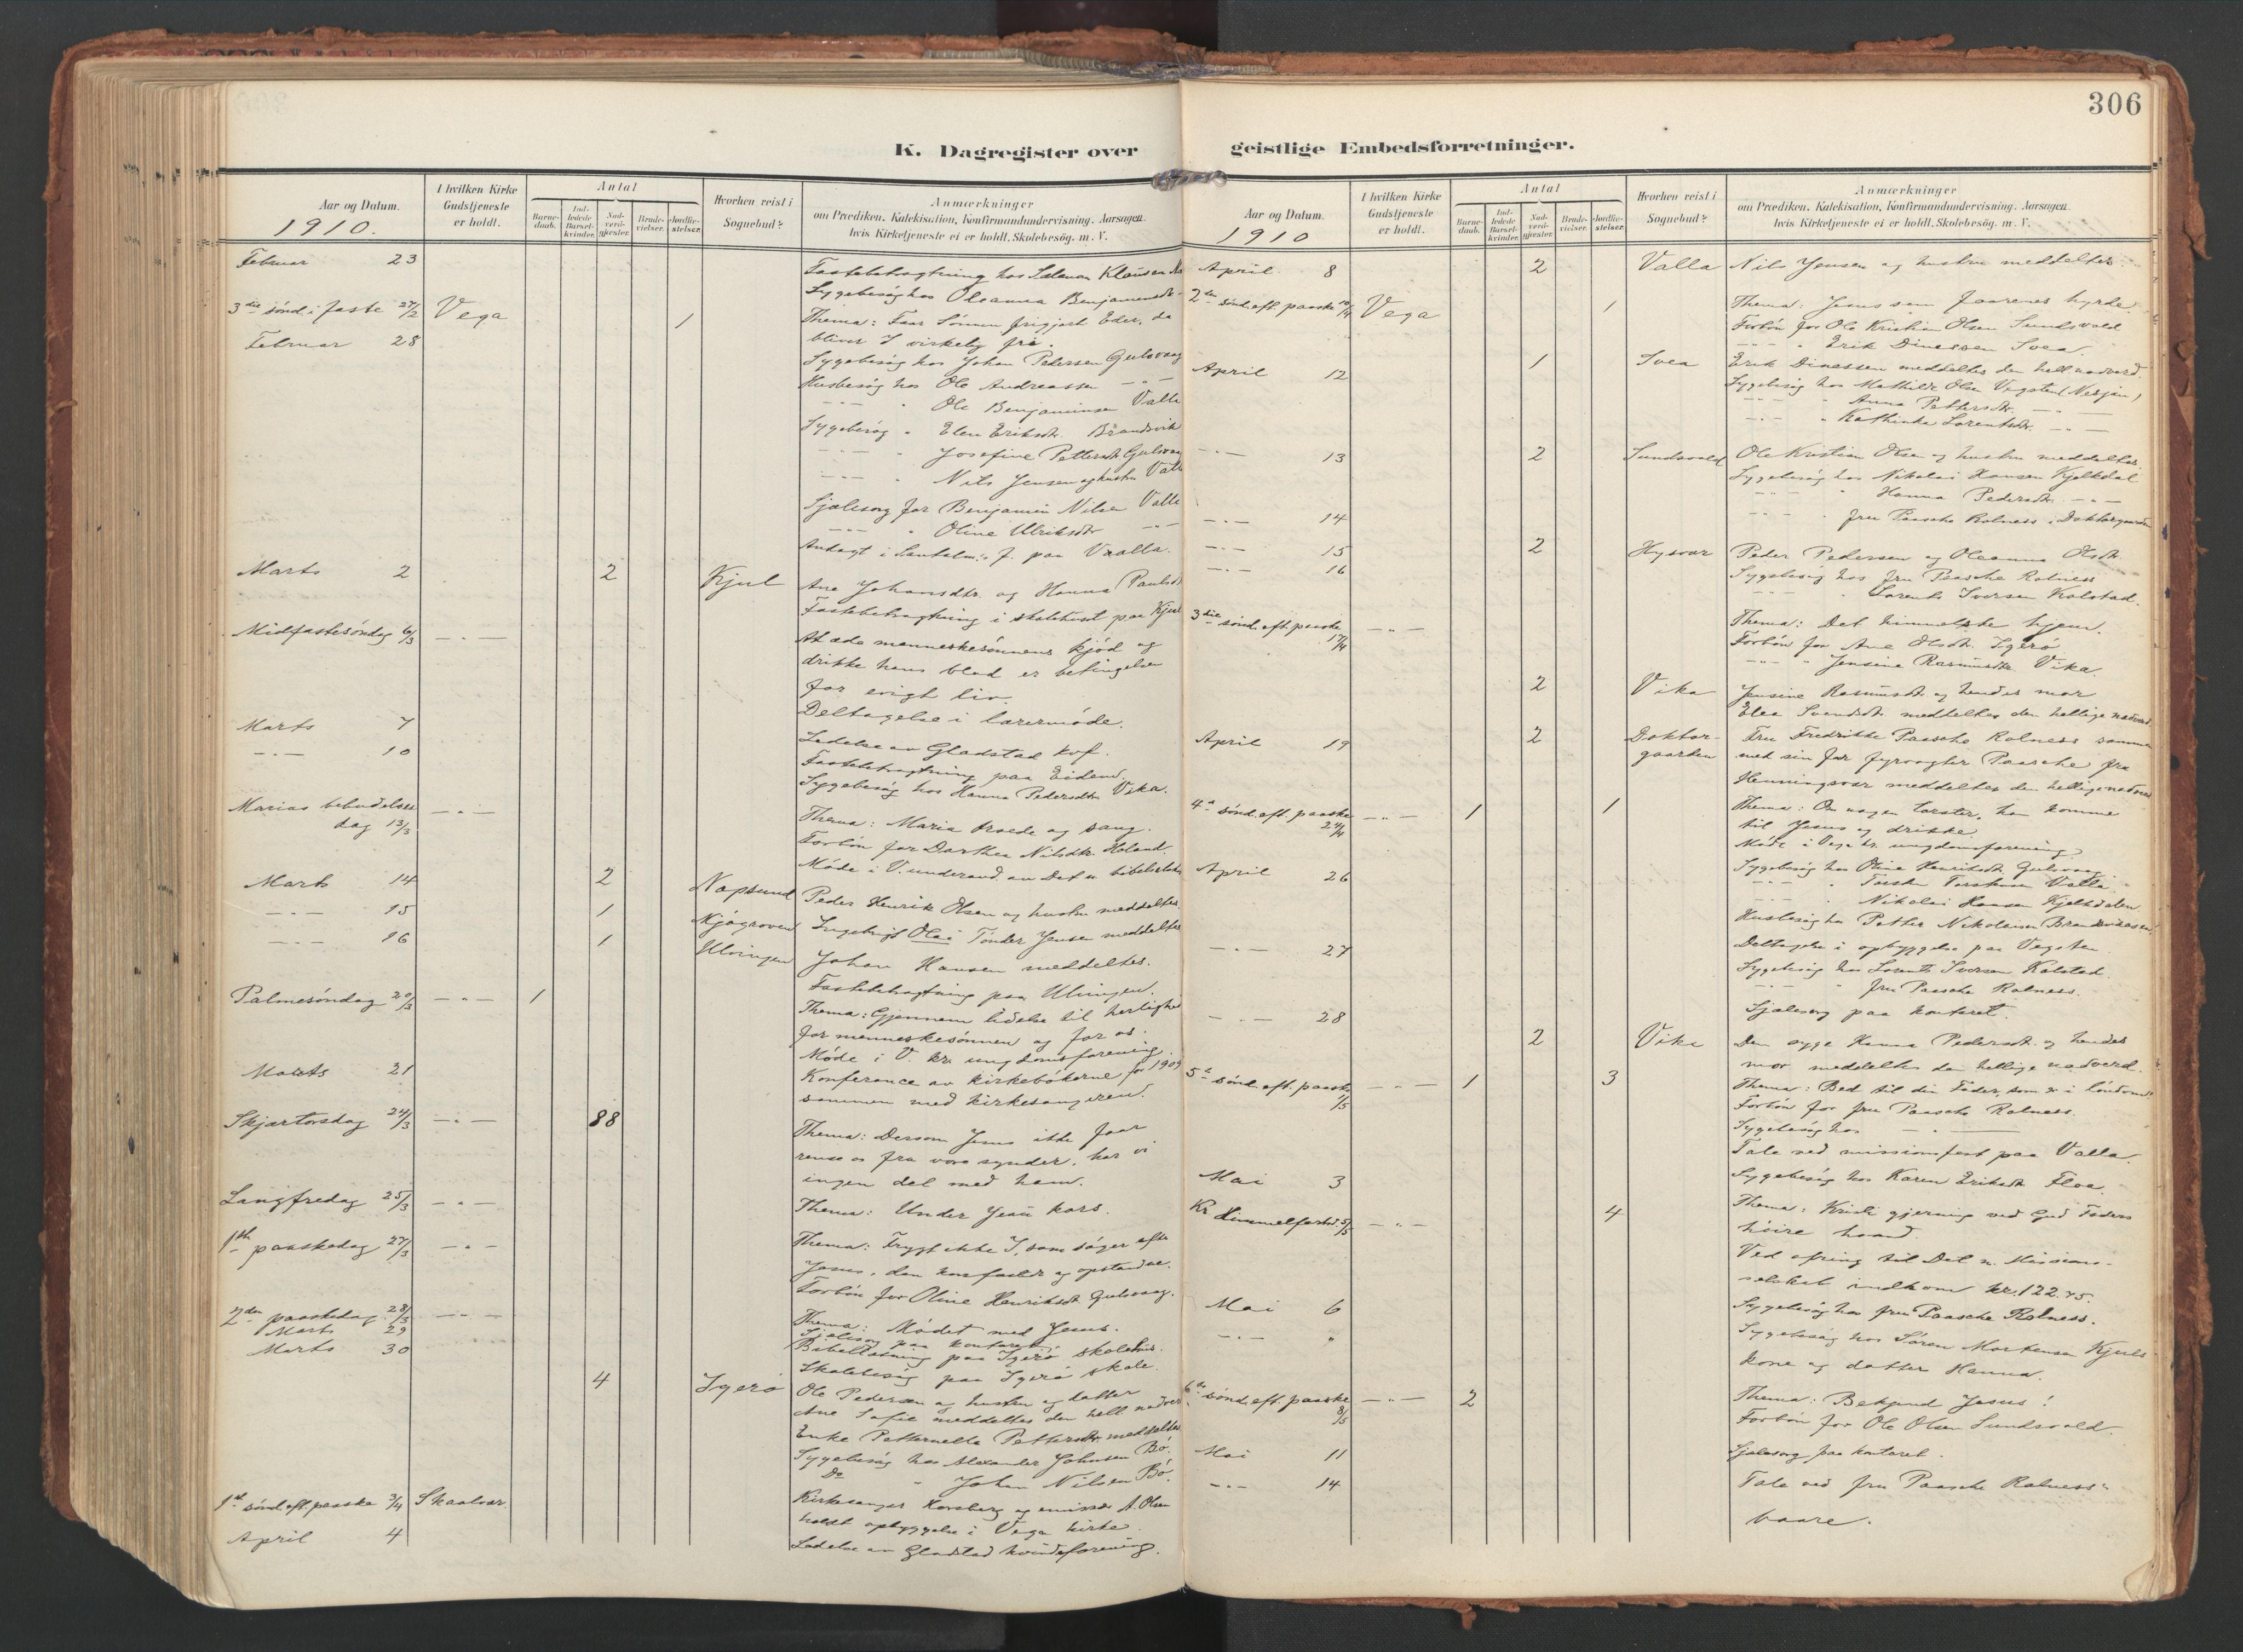 306
K. Dagregister over
Aar og Datum.
I hvilken Kirke
Gudstjeneste
er holdt.
Antal
Barne-
daab.
Ind-
ledede
Barsel-
kvinder.
Nad-
verd-
gjæster.
Brude-
vielser.
Jordfæ-
stelser.
Hvorhen reist i
Sognebud?
Anmærkninger
om Prædiken, Katekisation, Konfirmandundervisning, Aarsagen
hvis Kirketjeneste ei er holdt, Skolebesøg. m. V.
1910.
Februar 23
Fastebetragtning hos Klausen
Sygebesøg hos Oleanna Benjaminsdt.
3die sønd. i faste 27/2 Vega 1
Thema: Faar Sønnen frigjort Eder, da
bliver I virkelig fri.
Februar 28
Sygebesøg hos Johan Pedersen Gulsvaag
Husbesøg hos Ole Andreassen — " —
— " — " Ole Benjaminsen Valla
Sygebesøg " Elen Eriksdt. Brandsvik
— " — " Josefine Pettersdt. Gulsvaag
— " — " Nils Jensen og hustru Valla
Sjælesorg for Benjamin Nilsen Valla
— " — " Oline Ulriksdtr — " —
Andagt i f. paa Valla.
Marts 2 2 Kjul
Ane Johansdtr. og Hanna Paulsdt
Fastebetragtning i skolehuset paa Kjul
Midfastesøndag 6/3 — " —
At æde menneskesønnens kjød og
drikke hans blod er betingelsen
for evigt liv.
Marts 7
Deltagelse i lærermøde.
— " — 10
Ledelse av Gladstad kvf.
Fastebetragtning paa Eidem.
Sygebesøg hos Hanna Pedersdtr Vika.
Marias bebudelses
dag 13/3 — " —
Thema: Maria troede og sang.
Forbøn for Dorthea Nilsdtr. Holand.
Møde i V. underavd. av Det n. bibelselskab
Marts 14 2 Napsund
Peder Henrik Olsen og hustru meddeltes.
— " — 15 1
Ingebrigt Olai Tønder Jensen meddeltes
— " — 16 1 Ulvingen
Johan Hansen meddeltes.
Fastebetragtning paa Ulvingen.
Palmesøndag 20/3 — " — 1
Thema: Gjennem lidelse til herlighed
for menneskesønnen og for os.
Møde i V. kr. ungdomsforening
Marts 21
Konference av kirkebøkerne for 1909
sammen med kirkesangeren.
Skjærtorsdag 24/3 — " — 88
Thema: Dersom Jesus ikke faar
rense os fra vore synder, har vi
ingen del med ham.
Langfredag 25/3 — " —
Thema: Under Jesu kors.
1ste paaskedag 27/3 — " —
Thema: Frygt ikke I, som søger efter
Jesus, den korsfæstede og opstandne.
Forbøn for Oline Henriksdt. Gulsvaag.
2den paaskedag 28/3 — " —
Thema: Mødet med Jesus.
Marts 29
Sjælesorg paa kontoret
Marts 30
Bibellæsning paa Igerø skolehus.
Skolebesøg paa Igerø skole.
4 Igerø
Ole Pedersen og hustru og datter
Ane Sofie meddeltes den hell nadver
Enke Petternella Pettersdtr. meddeltes
Sygebesøg hos Alexander Johnsen Bø.
Do " Johan Nilsen Bø.
1ste sønd. eft. paaske 3/4 Skaalvær.
Kirkesanger Korsberg og emissær A. Olsen
holdt opbyggelse i Vega kirke.
April 4
Ledelse av Gladstad kvindeforening.
geistlige Embedsforretninger.
Aar og Datum.
I hvilken Kirke
Gudstjeneste
er holdt.
Antal
Barne-
daab.
Ind-
ledede
Barsel-
kvinder.
Nad-
verd-
gjæster.
Brude-
vielser.
Jordfæ-
stelser.
Hvorhen reist i
Sognebud?
Anmærkninger
om Prædiken, Katekisation, Konfirmandundervisning, Aarsagen
hvis Kirketjeneste ei er holdt, Skolebesøg. m. V.
1910
April 8 2 Valla
Nils Jensen og hustru meddeltes.
2den sønd. eft. paaske 10/4 Vega 1
Thema: Jesus som faarenes hyrde.
Forbøn for Ole Kristian Olsen Sundsvold
— " — " Erik Dinessen Svea.
April 12 1 Svea
Erik Dinessen meddeltes den hell. nadverd.
Sygebesøg hos Mathilde Olsen Vegsten (Nesjen)
— " — " Anna Pettersdtr. — " —
— " — " Kathinka Lorentsdtr. — " —
— " — 13 2 Sundsvold
Ole Kristian Olsen og hustru meddeltes.
Sygebesøg hos Nikolai Hansen Kjelkdal
— " — " Hanna Pedersdtr. — " —
— " — 14
— " — " fru Paasche Rolness i Doktorgaarden
— " — 15 2 Hysvær
Peder Pedersen og Oleanna Olsdt.
— " — 16
Sygebesøg hos fru Paasche Rolness
— " — " Lorents Iversen Kolstad.
3die sønd. eft. paaske 17/4 — " —
Thema: Det himmelske hjem.
Forbøn for Ane Olsdt. Igerø
— " — " Jensine Rasmusdtr. Vika.
2 Vika
Jensine Rasmusdt. og hendes mor
Elea Svendsdt. meddeltes den hellige nadverd.
April 19 2 Doktor-
gaarden
Fru Fredrikke Paasche Rolness sammen
med sin far fyrvogter Paasche fra
Henningsvær meddeltes den hellige nadverd
4de sønd. eft. paaske 24/4 — " — 1 1
Thema: Om nogen tørster, han komme
til Jesus og drikke.
Møde i Vega kr. ungdomsforening
April 26
Sygebesøg hos Oline Henriksdt. Gulsvaag
— " — " Valla
— " — " Nikolai Hansen Kjelkdalen
Husbesøg hos Petter Nikolaisen Brandsvikaasen
— " — 27
Deltagelse i opbyggelse paa Vegsten.
Sygebesøg hos Lorents Iversen Kolstad.
— " — " fru Paasche Rolness.
— " — 28
Sjælesorg paa kontoret.
2 Vika
Den syge Hanna Pedersdt. og hendes
mor meddeltes den hellige nadverd.
5te sønd. eft. paaske 1/5 — " — 1 3
Thema: Bed til din Fader, som er i løndom
Forbøn for fru Paasche Rolness.
Sygebesøg hos — " —
Tale ved missionsfest paa Valla.
Mai 3
Sygebesøg hos Karen Eriksdt. Floa.
Kr Himmelfartsd. 5/5 — " — 4
Thema: Kristi gjerning ved Gud Faders
høire haand.
Ved ofring til Det n. Missions-
selskab indkom kr. 122.75.
Mai 6
Sygebesøg hos fru Paasche Rolness.
— " — "
Sygebesøg hos Søren Mortensen Kjuls
kone og datter Hanna.
6te sønd. eft. paaske 8/5 — " — 2
Thema: Bekjend Jesus!
Forbøn for Ole Olsen Sundsvold.
Mai 11
Sjælesorg paa kontoret.
— " — 14
Tale ved fru Paasche Rolness's
baare.